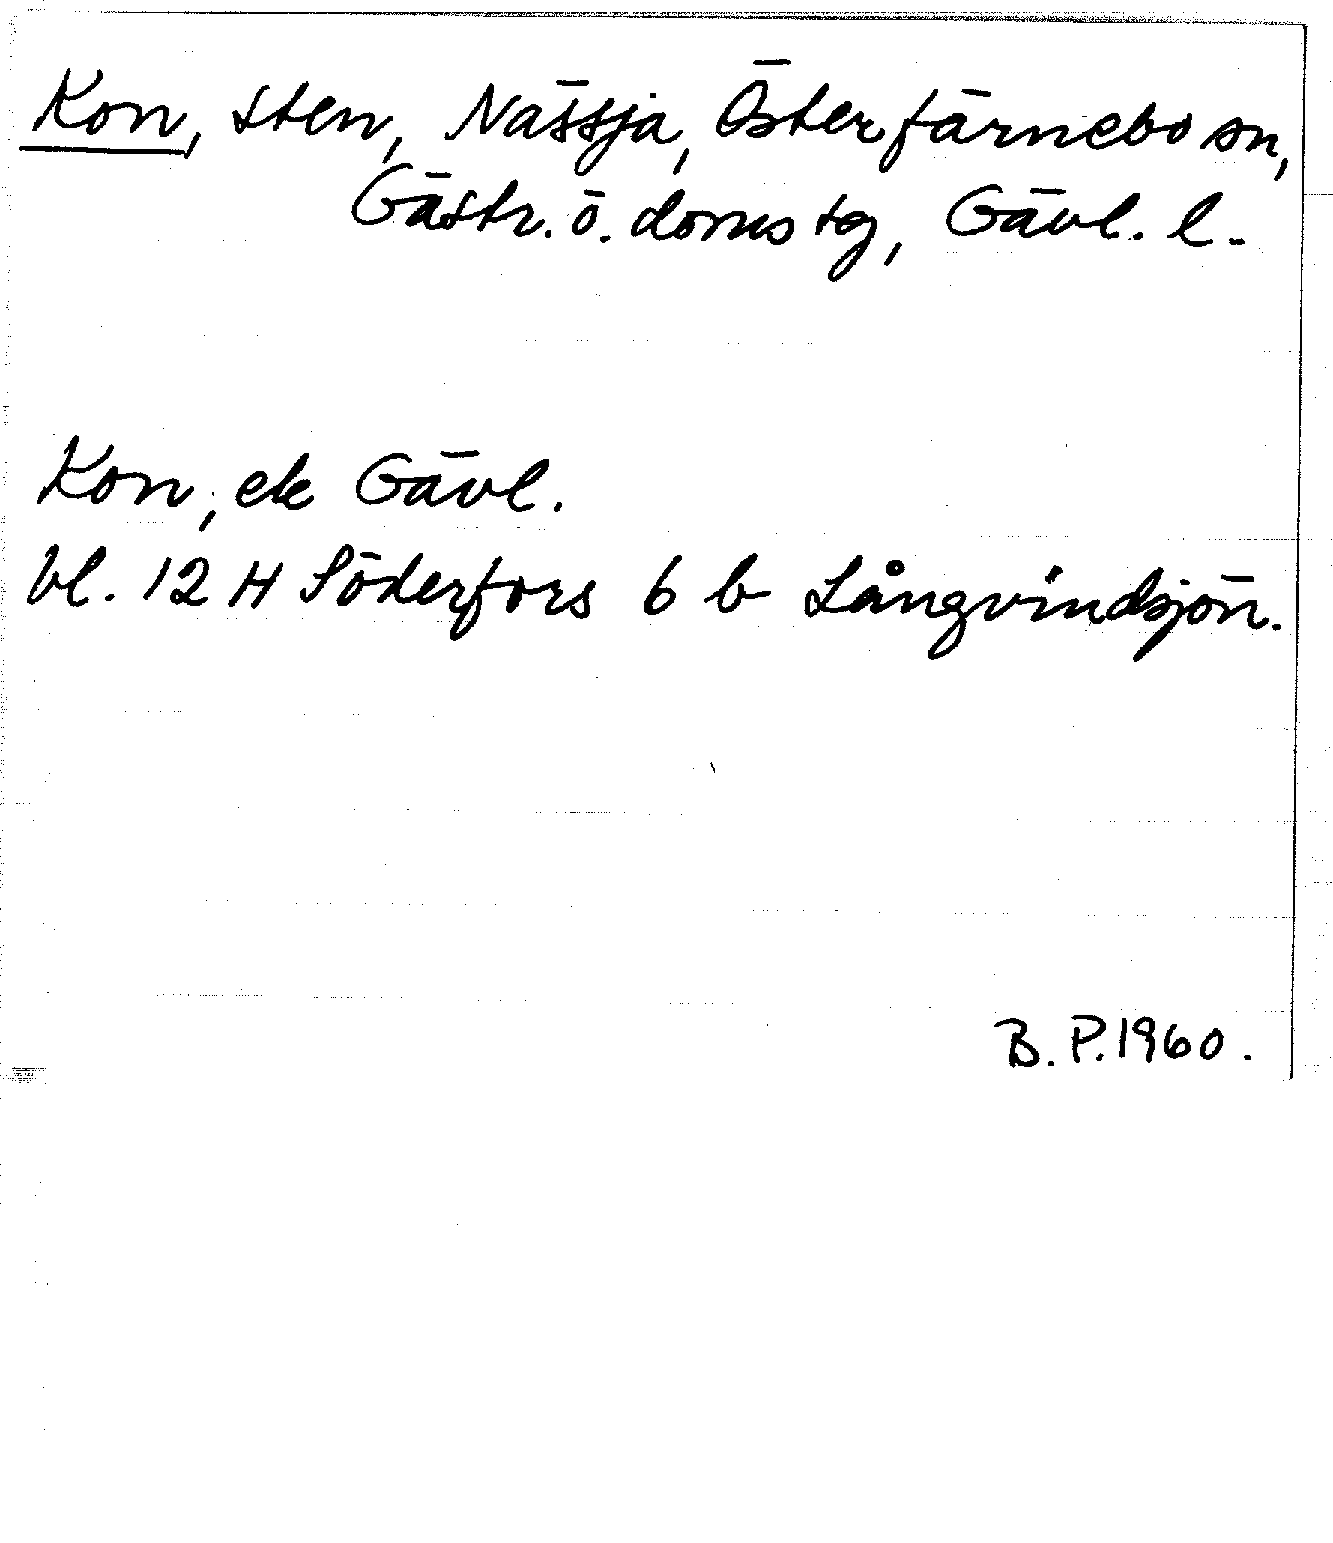 Kon, sten, Nässja, Österfärnebo sn,
Gästr. ö. doms tg, Gävl. l.
Kon, ek Gävl.
bl. 12 H Söderfors 6 b Långvindsjön.
B. P. 1960.